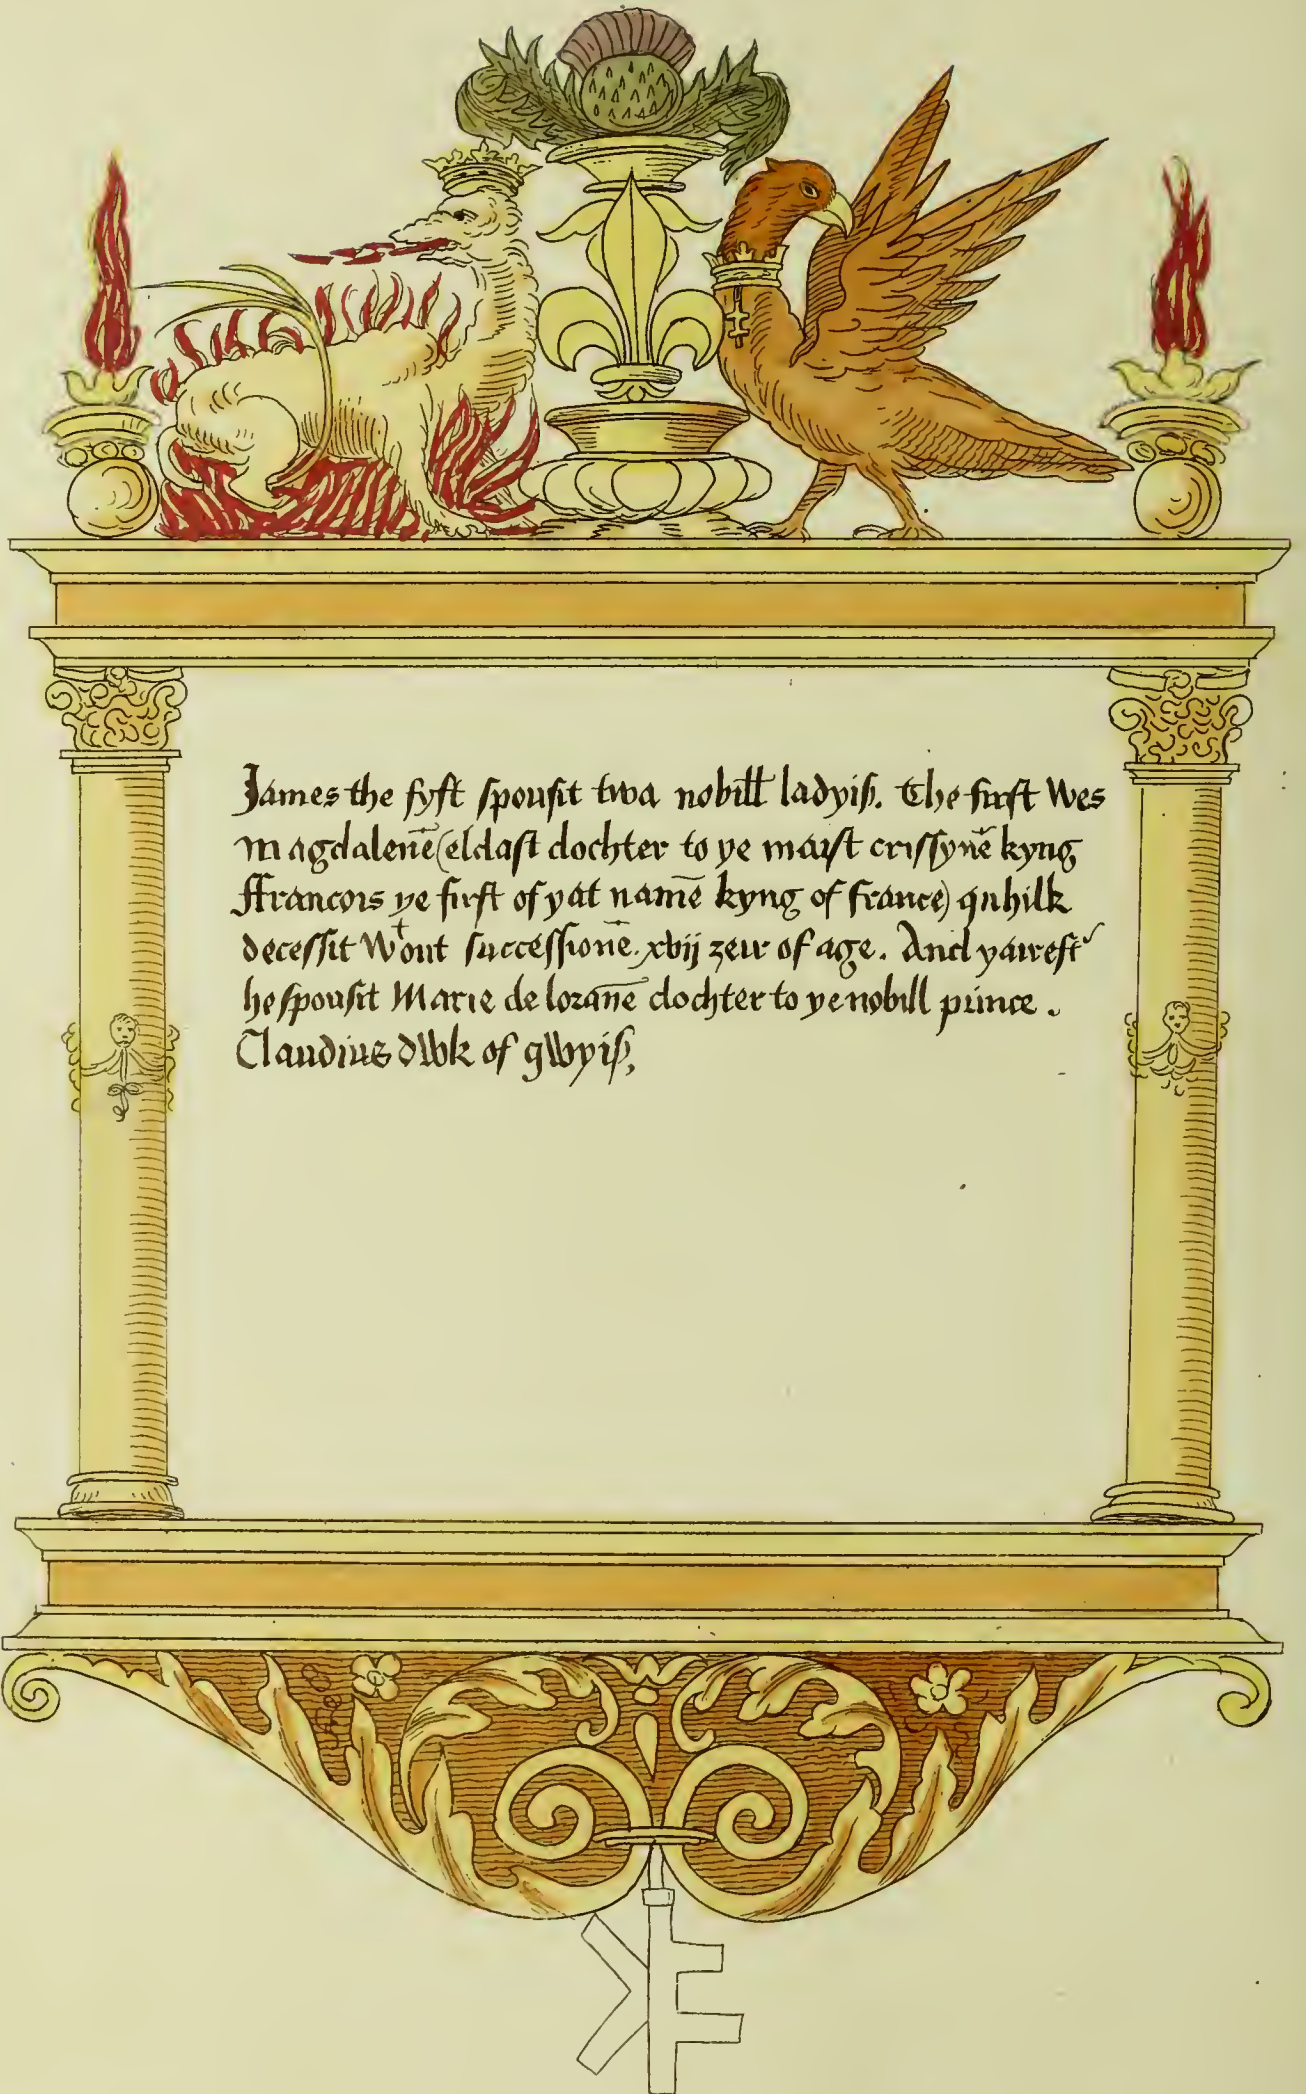 James the fyft spousit twa nobill ladyis. The first Wes
Magdalenē (eldast dochter to ye maist crissynē kyng
ffrancois ye first of yat namē kyng of france) quhilk
decessit Wᵗout successionē. xvij zeir of age. And yaireft᾽
he spousit Marie de loranē dochter to ye nobill prince.
Claudius dwk of gwyis,